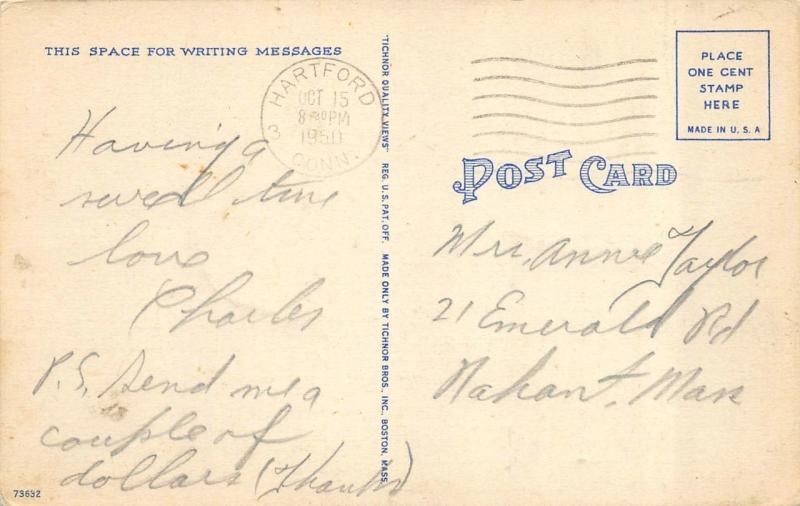 THIS SPACE FOR WRITING MESSAGES
Having a
swell time
love
Charles
P.S. Send me a
couple of
dollars (Thanks)
73632
HARTFORD
OCT 15
8 30 PM
1950
3 CONN.
"TICHNOR QUALITY VIEWS" REG. U.S. PAT. OFF. MADE ONLY BY TICHNOR BROS., INC., BOSTON, MASS.
PLACE
ONE CENT
STAMP
HERE
MADE IN U. S. A
POST CARD
Mrs. Annie Taylor
21 Emerald Rd
Nahant, Mass